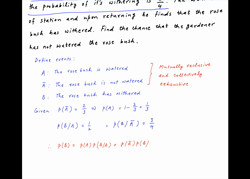 the probability of it's withering is 3/4. The
of station and upon returning he finds that the rose
bush has withered. Find the chance that the gardener
has not watered the rose bush.
Define events:
A: The rose bush is watered
Ā: The rose bush is not watered
B: The rose bush has withered
Mutually exclusive
and collectively
exhaustive
Given P(Ā) = 2/3 ⇒ P(A) = 1 - 2/3 = 1/3
P(B/A) = 1/2 P(B/Ā) = 3/4
∴ P(B) = P(A) P(B/A) + P(Ā) P(B/